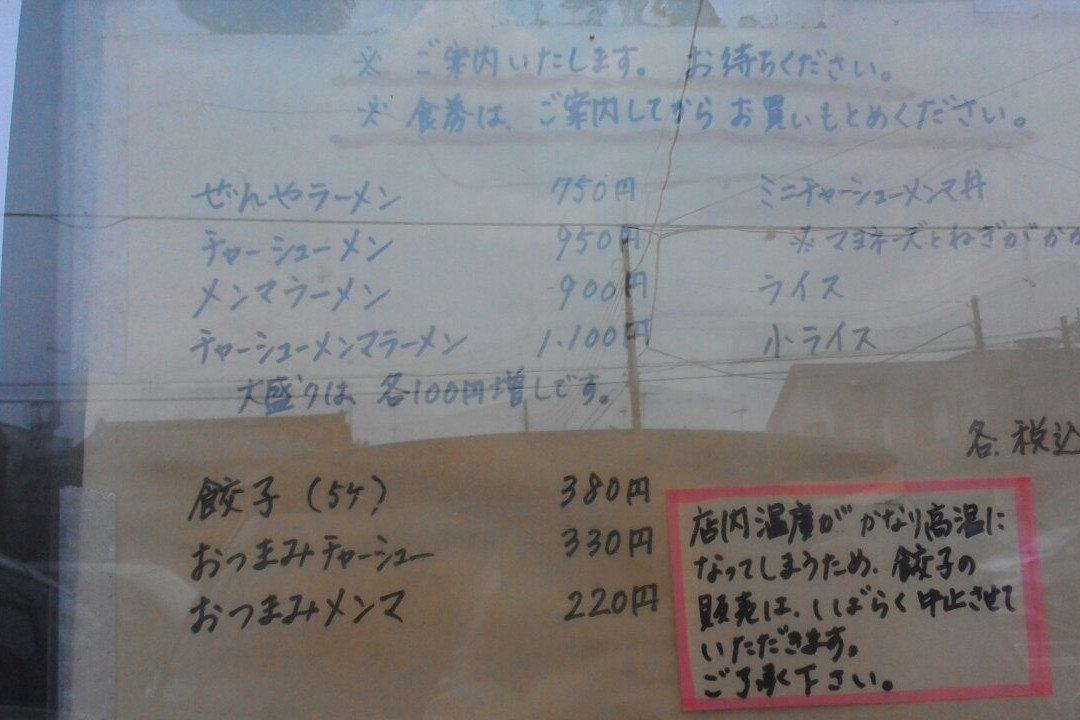 ※ ご案内いたします。 お待ちください。
※ 食券は、ご案内してからお買いもとめください。
ぜんやラーメン 750円 ミニチャーシューメンマ丼
チャーシューメン 950円 ※ マヨネーズとねぎがかか
メンマラーメン 900円 ライス
チャーシューメンマラーメン 1.100円 小ライス
大盛りは、各100円増しです。
各.税込
餃子 (5ケ) 380円
おつまみチャーシュー 330円
おつまみメンマ 220円
店内温度がかなり高温に
なってしまうため、餃子の
販売は、しばらく中止させて
いただきます。
ご了承下さい。